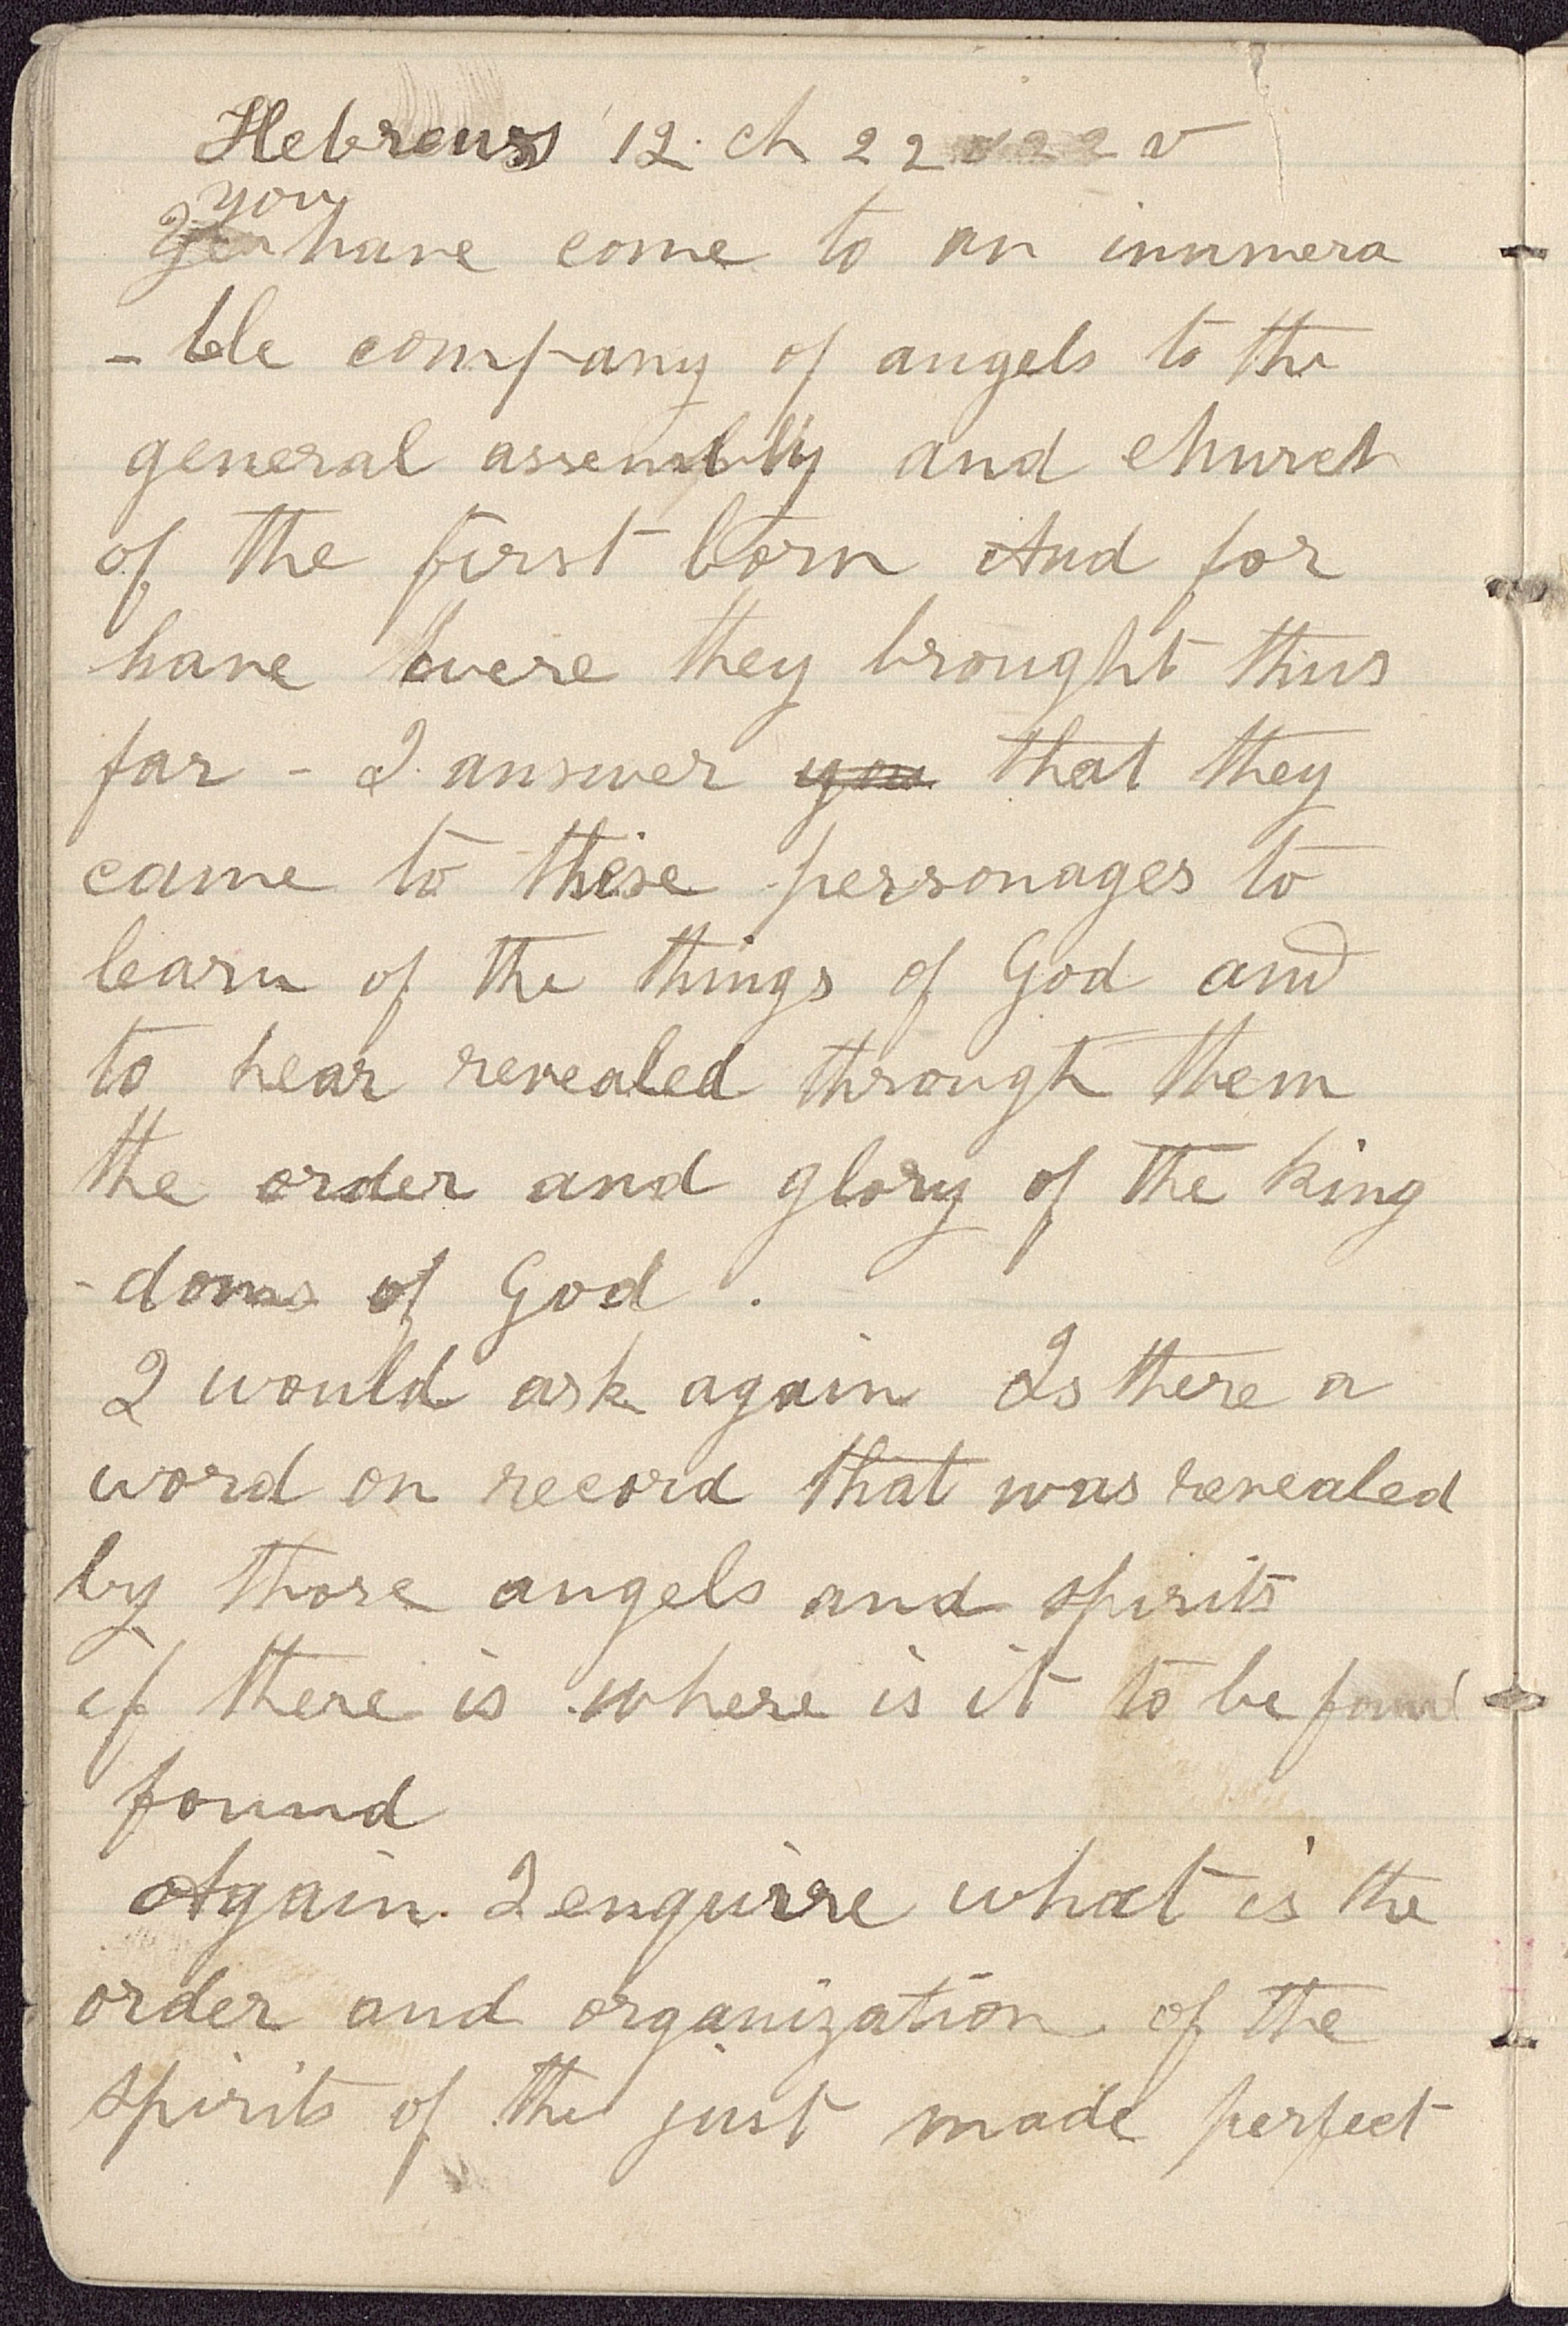 Hebrews 12. ch 22 v
you
have come to an innumera
- ble company of angels to the
general assembly and church
of the first born And for
have were they brought thus
far - I answer you that they
came to these personages to
learn of the things of God and
to hear revealed through them
the order and glory of the king
- doms of God .
I would ask again Is there a
word on record that was revealed
by those angels and spirits
if there is where is it to be found
found
Again I enquire what is the
order and organization of the
spirits of the just made perfect